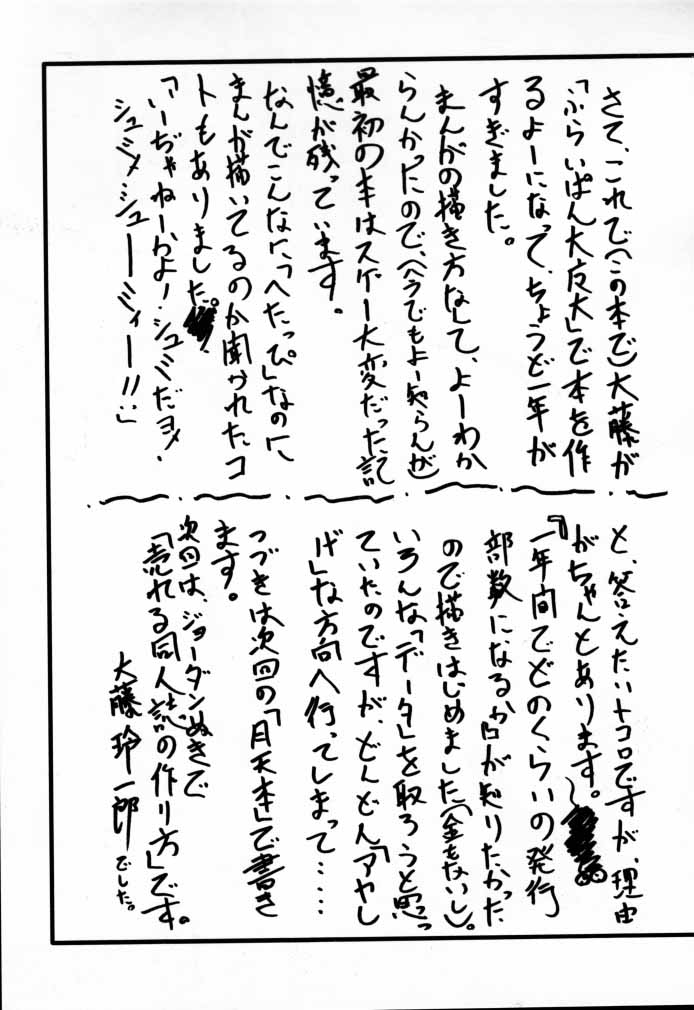 さて、これで(この本で)大藤が
「ふらいぱん大友大」で本を作
るよーになって、ちょうど一年が
すぎました。
まんがの描き方なして、よーわか
らんかったので、(今でもよー知らんが)
最初の本はスゲー大変だった記
憶が残っています。
なんでこんなに、「へたっぴ」なのに、
まんが描いてるのか聞かれたコ
トもありました。
「いーぢゃねーかよ!シュミだヨ!
シュミメシューーミィー!!」
と、答えたいトコロですが、理由
がちゃんとあります。
『一年間でどのくらいの発行
部数になるか』が知りたかった
ので描きはじめました(金もないし)。
いろんな「データ」を取ろうと思っ
ていたのですが、どんどん「アヤし
げ」な方向へ行ってしまって……
つづきは次回の「月天本」で書き
ます。
次回は、ジョーダンぬきで
「売れる同人誌の作り方」です。
大藤玲一郎でした。